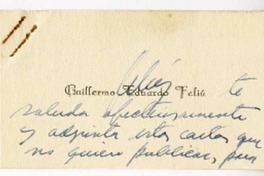 Guillermo Eduardo Feliú
te
saluda afectuosamente
y adjunta estas cartas que
no quiere publicar, para